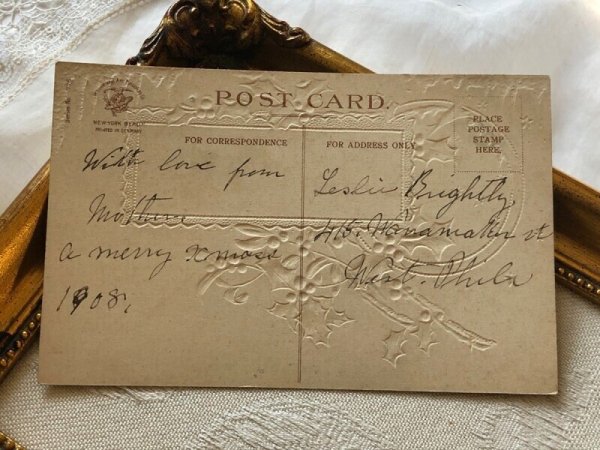 POST CARD.
NEW YORK BERLIN
PRINTED IN GERMANY
FOR CORRESPONDENCE
FOR ADDRESS ONLY
PLACE
POSTAGE
STAMP
HERE.
With love from
Mother
a merry xmass
1908,
Leslie Brightly
415. Wanamaker st
West. Phila